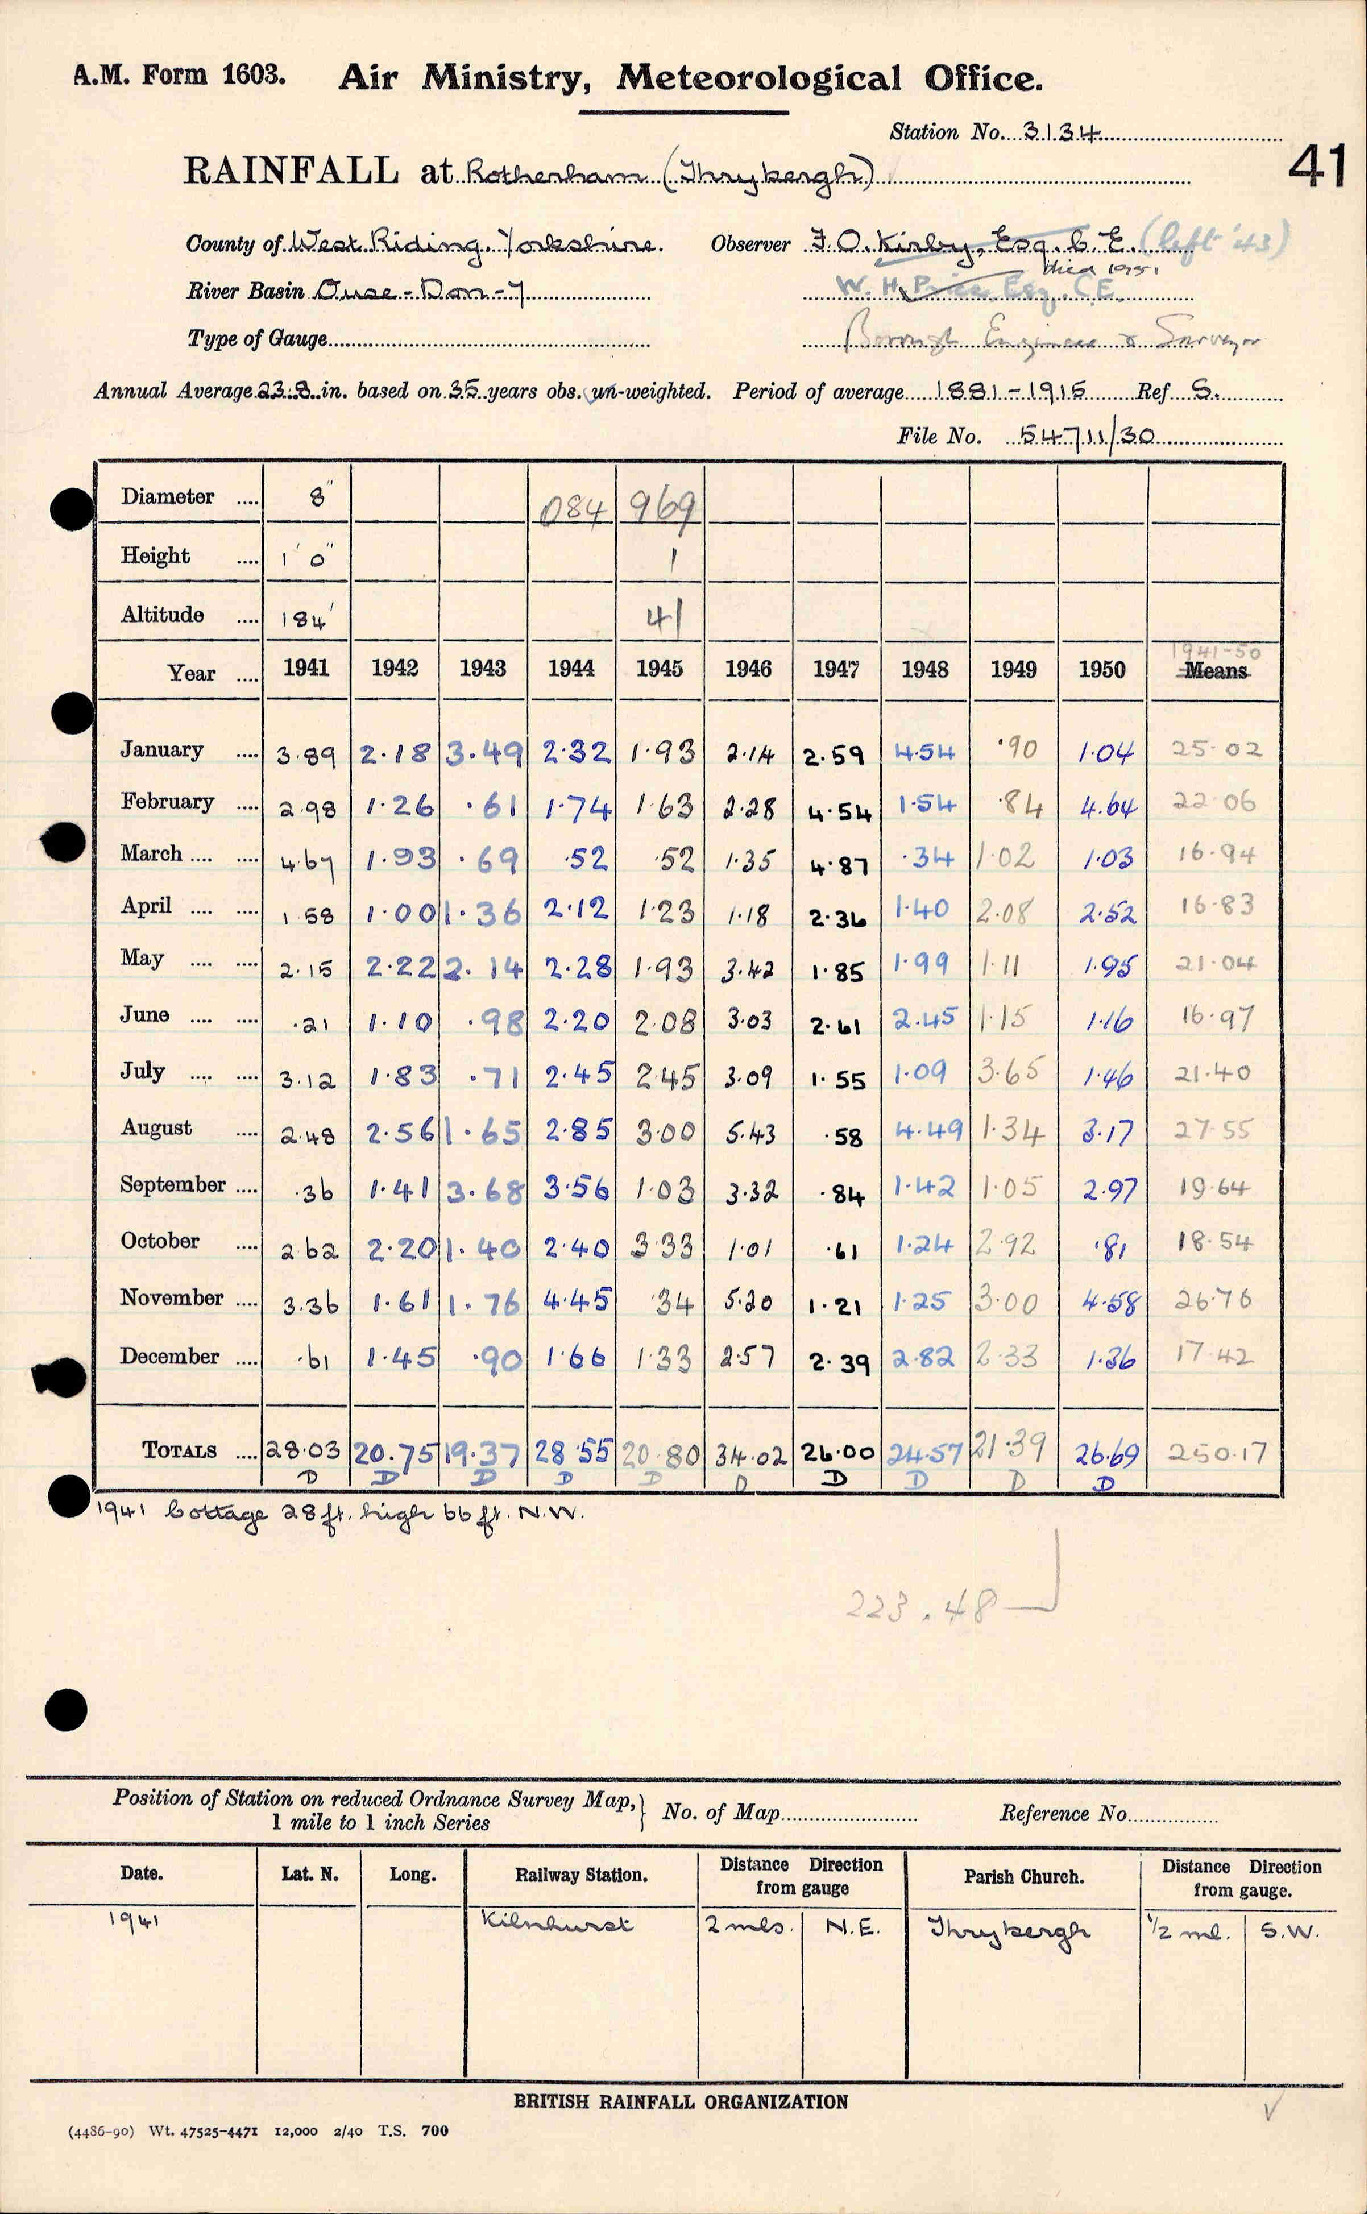 A.M. Form 1603. Air Ministry, Meteorological Office.
Station No. 3134
41
RAINFALL at Rotherham (Thrybergh)
County of West Riding. Yorkshire. Observer F. O. Kirby, Esq. C. E. (left '43)
died 1951
River Basin Ouse-Don-7 W. H. Price Esq. C.E.
Type of Gauge Borough Engineer & Surveyor
Annual Average 23.8 in. based on 35 years obs. un-weighted. Period of average 1881-1915 Ref S.
File No. 54711/30
Diameter .... 8" 084 969
Height .... 1' 0" 1
Altitude .... 184' 41
1941-50
Year .... 1941 1942 1943 1944 1945 1946 1947 1948 1949 1950 Means
January .... 3.89 2.18 3.49 2.32 1.93 2.14 2.59 4.54 .90 1.04 25.02
February .... 2.98 1.26 .61 1.74 1.63 2.28 4.54 1.54 .84 4.64 22.06
March .... .... 4.67 1.93 .69 .52 .52 1.35 4.87 .34 1.02 1.03 16.94
April .... .... 1.58 1.00 1.36 2.12 1.23 1.18 2.36 1.40 2.08 2.52 16.83
May .... .... 2.15 2.22 2.14 2.28 1.93 3.42 1.85 1.99 1.11 1.95 21.04
June .... .... .21 1.10 .98 2.20 2.08 3.03 2.61 2.45 1.15 1.16 16.97
July .... .... 3.12 1.83 .71 2.45 2.45 3.09 1.55 1.09 3.65 1.46 21.40
August .... 2.48 2.56 1.65 2.85 3.00 5.43 .58 4.49 1.34 3.17 27.55
September .... .36 1.41 3.68 3.56 1.03 3.32 .84 1.42 1.05 2.97 19.64
October .... 2.62 2.20 1.40 2.40 3.33 1.01 .61 1.24 2.92 .81 18.54
November .... 3.36 1.61 1.76 4.45 .34 5.20 1.21 1.25 3.00 4.58 26.76
December .... .61 1.45 .90 1.66 1.33 2.57 2.39 2.82 2.33 1.36 17.42
TOTALS .... 28.03 20.75 19.37 28.55 20.80 34.02 26.00 24.57 21.39 26.69 250.17
D D D D D D D D D D
1941 Cottage 28 ft. high 66 ft. N.W.
223.48
Position of Station on reduced Ordnance Survey Map,} No. of Map Reference No.
1 mile to 1 inch Series
Date. Lat. N. Long. Railway Station. Distance Direction from gauge Parish Church. Distance Direction from gauge.
1941 Kilnhurst 2 mls. N.E. Thrybergh 1/2 ml. S.W.
BRITISH RAINFALL ORGANIZATION
(4486-90) Wt. 47525-4471 12,000 2/40 T.S. 700